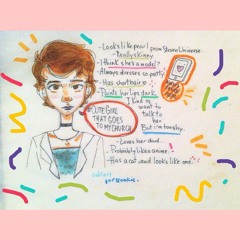 -Looks like pearl from Steven Universe.
-Really skinny
-I think she's a model?
-Always dresses so pretty
-Has short hair.
-Paints her lips dark.
I kind of want to talk to her
But i'm too shy.
CUTE GIRL
THAT GOES
TO MY CHURCH
-Loves her dad.
-Probably likes anime.
-Has a cat and looks like one.